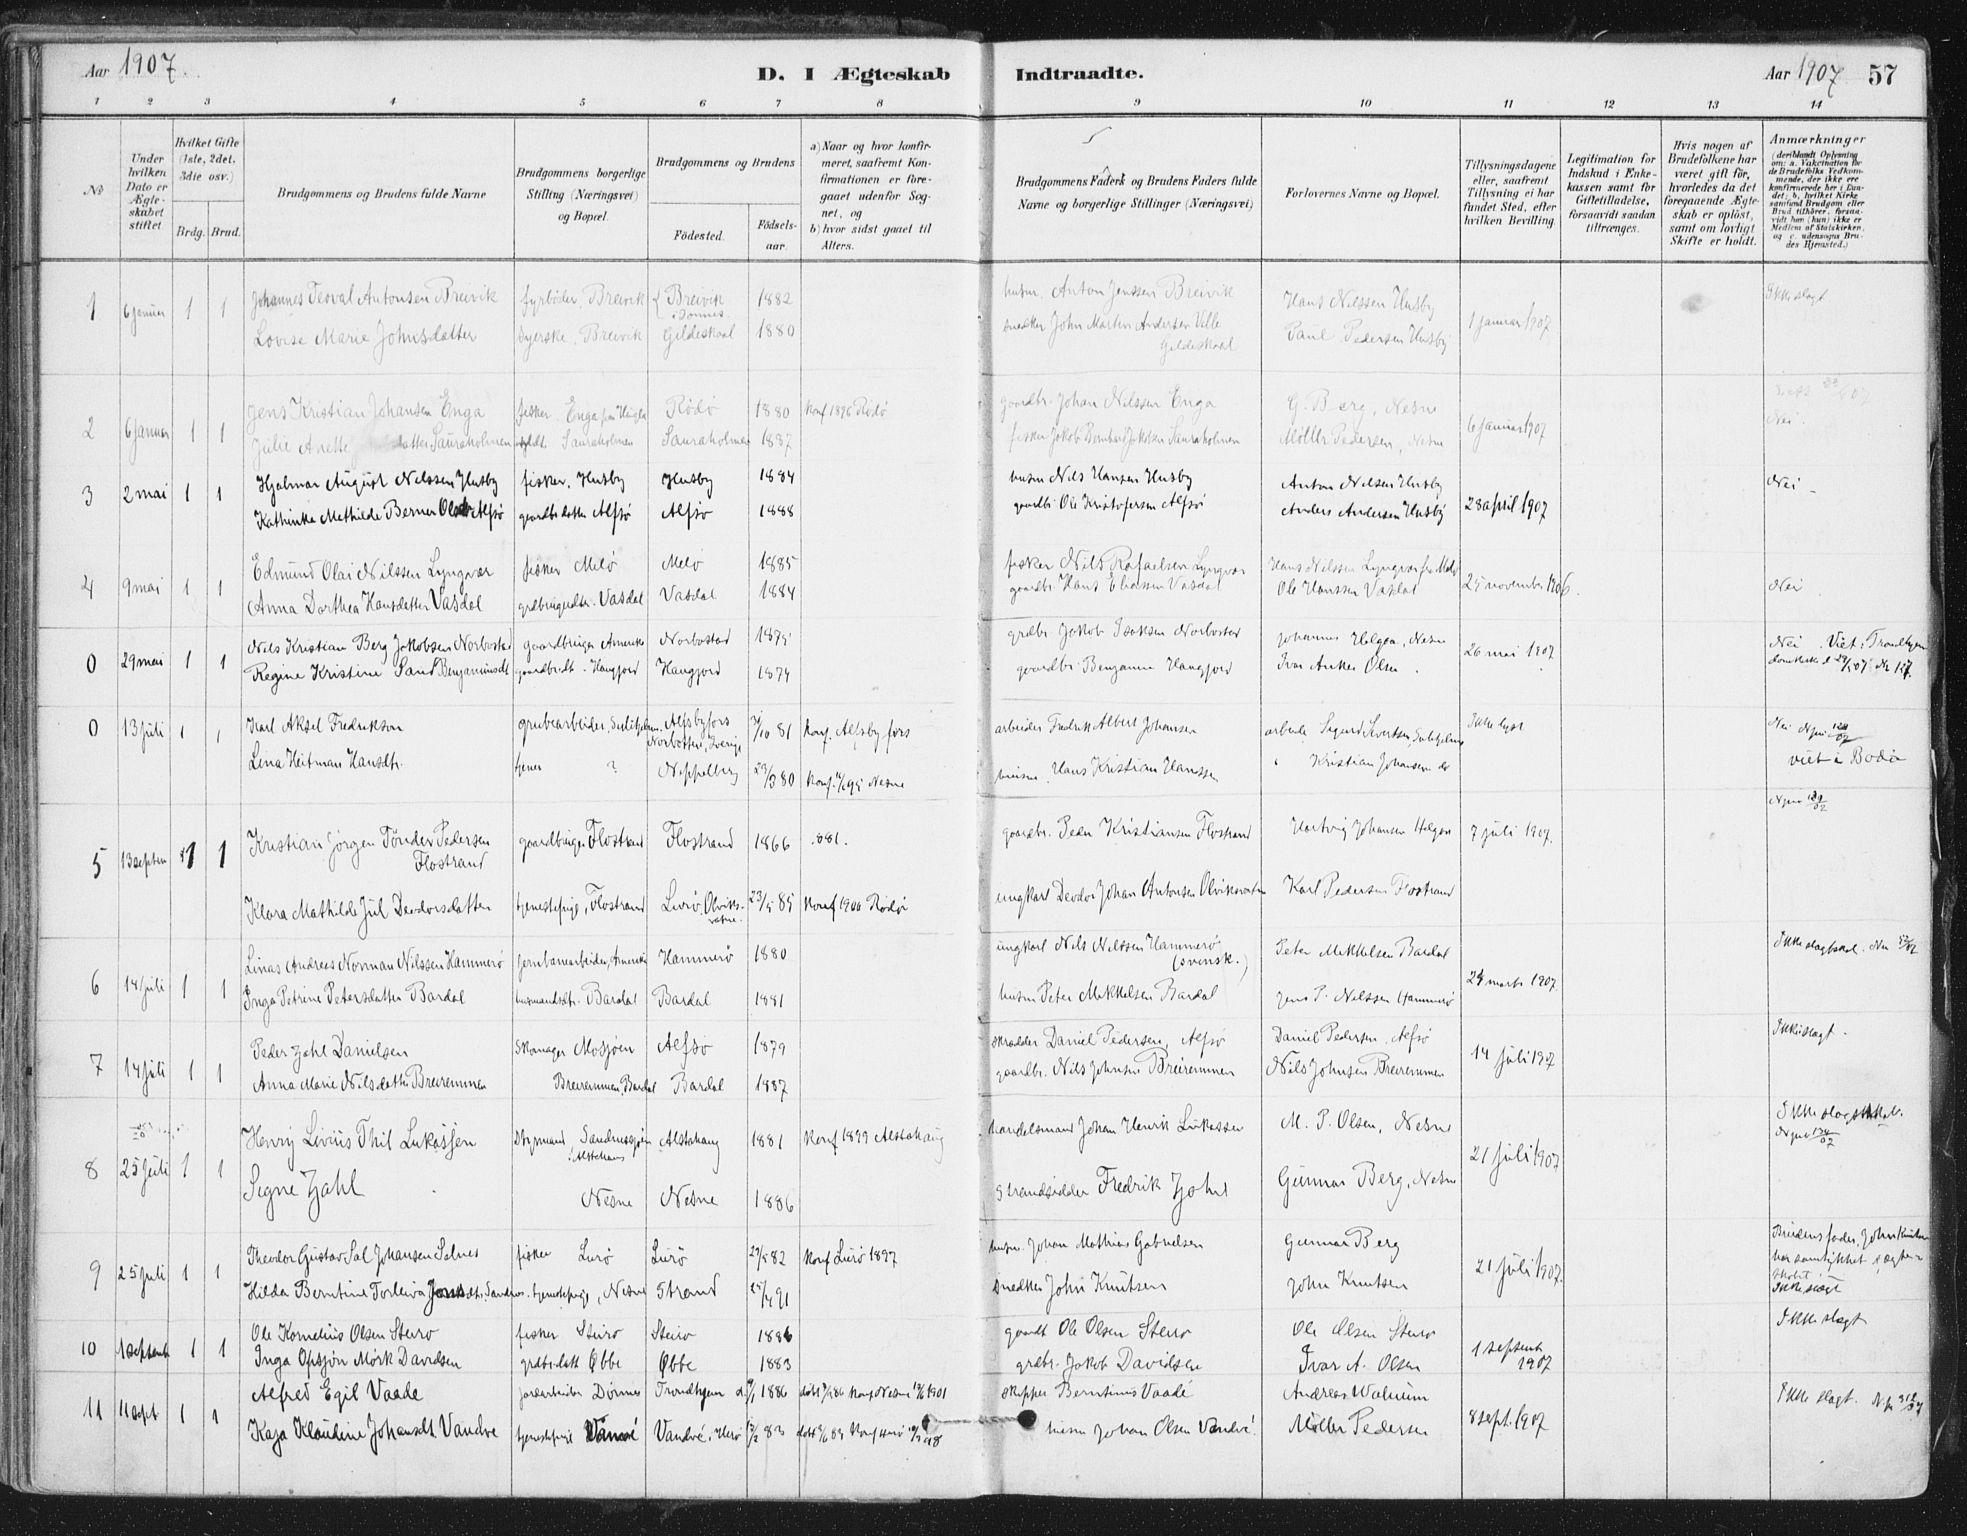 Aar 1907.
D. I Ægteskab Indtraadte.
Aar 1907. 57
1 2 3 4 5 6 7 8 9 10 11 12 13 14
№
Under hvilken Dato er Ægteskabet stiftet
Hvilket Gifte (1ste, 2det, 3die osv.)
Brdg. Brud.
Brudgommens og Brudens fulde Navne
Brudgommens borgerlige Stilling (Næringsvei) og Bopæl.
Brudgommens og Brudens
Fødested.
Fødselsaar.
a) Naar og hvor konfirmeret, saafremt Konfirmationen er foregaaet udenfor Sognet, og
b) hvor sidst gaaet til Alters.
Brudgommens Faders og Brudens Faders fulde Navne og borgerlige Stillinger (Næringsvei)
Forlovernes Navne og Bopæl.
Tillysningsdagene eller, saafremt Tillysning ei har fundet Sted, efter hvilken Bevilling.
Legitimation for Indskud i Enkekassen samt for Giftetilladelse, forsaavidt saadan tiltrænges.
Hvis nogen af Brudefolkene har været gift før, hvorledes da det foregaaende Ægteskab er opløst, samt om lovligt Skifte er holdt.
Anmærkninger
(deriblandt Oplysning om: a. Vakcination for de Brudefolks Vedkommende, der ikke ere konfirmerede her i Landet; b. hvilket Kirkesamfund Brudgom eller Brud tilhører, forsaavidt han (hun) ikke er Medlem af Statskirken, og c. udensogns Brudes Hjemsted.)
1 6 januar 1 1 Johannes Tesval Antonsen Breivik fyrbøder, Breivik Breivik i Dønnes 1882 husm. Anton Jenssen Breivik Hans Nilssen Husby 1 januar 1907 Ikke slagt.
Lovise Marie Johnsdatter syerske, Breivik Gildeskaal 1880 snedker John Martin Andersen Ville Gildeskaal Paul Pedersen Husby
2 6 januar 1 1 Jens Kristian Johansen Enga fisker Enga paa Hugla Rødø 1880 Konf 1896 Rødø gaardbr. Johan Nilssen Enga G. Berg, Nesne 6 januar 1907 Nei.
Julie Anette datter Sauraholmen Sauraholmen Sauraholmen 1887 fisker Jakob Bernhard Jakobsen Sauraholmen Møller Pedersen, Nesne
3 2 mai 1 1 Hjalmar August Nilssen Husby fisker, Husby Husby 1884 husm Nils Hansen Husby Anton Nilsen Husby 28 april 1907 Nei
Kathinka Mathilde Berner Alfsø gaardbr. datter Alfsø Alfsø 1888 gaardbr. Ole Kristofersen Alfsø Anders Andersen Husby
4 9 mai 1 1 Edmund Olai Nilssen Lyngvær fisker Melø Melø 1885 fisker Nils Rafaelsen Lyngvær Hans Nilssen Lyngvær fra Melø 25 november 1906. Nei
Anna Dorthea Hansdatter Vasdal Vasdal Vasdal 1884 gaardbr. Hans Eliassen Vasdal Ole Hanssen Vasdal
0 29 mai 1 1 Nils Kristian Berg Jakobsen Norbostad gaardbruger Amerika Norbostad 1875 grdbr. Jakob Isaksen Norbostad Johannes Helgaa, Nesne 26 mai 1907 Nei Viet i Trondhjem
Regine Kristine Sand Benjaminsdt gaardbrdt. Haugjord Haugjord 1874 gaardbr. Benjamin Haugjord Ivar Anker Olsen domkirke d 29/5 07
0 13 juli 1 1 Karl Aksel Fredriksson grubearbeider, Sulitjelma Alfsbyfors Norbotten, Sverige 31/10 81 Konf. Alfsbyfors arbeider Fredrik Albert Johansen arbeide Sigurd Sivertsen, Sulitjelma Ikke lyst Nei
Lina Heitman Hansdtr. tjener ? Neppelberg 29/3 80 Konf. Nesne husm. Hans Kristian Hanssen Kristian Johansen do viet i Bodø
5 13 septem 1 1 Kristian Jørgen Tønder Pedersen Flostrand gaardbruger Flostrand Flostrand 1866 1881. gaardbr. Peder Kristiansen Flostrand Hartvig Johansen Helgaa 7 juli 1907.
Klara Mathilde Jul Deodorsdatter tjenestepige, Flostrand Lurø, Olviksvatne 23/5 85 Konf 1900 Rødø ungkarl Deodor Johan Antonsen Olviksvatn Karl Pedersen Flostrand
6 14 juli 1 1 Linas Andreas Norman Nilssen Hammerø jernbanearbeider, Amerika Hammerø 1880 ungkarl Nils Nilssen Hammerø (svensk.) Peter Mikkelsen Bardal 24 marts 1907.
Inga Petrine Petersdatter Bardal husmandsdtr. Bardal Bardal 1881 husm Peter Mikkelsen Bardal Jens P. Nilssen Hammerø
7 14 juli 1 1 Peder Zahl Danielsen Skomager Mosjøen Alfsø 1879 skrædder Daniel Pedersen, Alfsø Daniel Pedersen, Alfsø 14 juli 1907 Ikke slagt.
Anna Marie Nilsdatter Breiremmen Breiremmen, Bardal Bardal 1887 gaardbr. Nils Johnsen Breiremmen Nils Johnsen Breiremmen
8 25 juli 1 1 Henry Livius Thil Lukassen Sandnessjøen Alstahaug Alstahaug 1881 Konf 1899 Alstahaug handelsmand Johan Henrik Lukassen M. P. Olsen, Nesne 21 juli 1907
Signe Zahl Nesne Nesne 1886 Strandsidder Fredrik Zahl Gunnar Berg, Nesne
9 25 juli 1 1 Theodor Gustav Sal Johansen Selnes fisker Lurø Lurø 29/5 82 Konf Lurø 1897 husm. Johan Mathias Gabrielsen Gunnar Berg 21 juli 1907. Brudens fader, John Knutsen har samtykket i ægteskabet.
Hilda Berntine Torleiva tjenestepige, Nesne Strand 25/4 91 snedker John Knutsen John Knutsen Ikke slægt
10 1 septemb 1 1 Ole Kornelius Olsen Steirø fisker Steirø Steirø 1886 gaardb Ole Olsen Steirø Ole Olsen Steirø 1 septemb 1907 Ikke slagt
Inga Opsjøn Mørk Davidsen grdbr. datt Øbbe Øbbe 1883 grdbr. Jakob Davidsen Ivar A. Olsen
11 11 sept 1 1 Alfred Egil Vaade jordarbeider Dønnes Trondhjem 1886 Konf Nesne 1901 skipper Berntinus Vaade Andreas Walnum 8 sept. 1907 Ikke slagt.
Kaja Klaudine Johansdt. Vandve tjenestepige Vandve Vandve i Herø 83 husm Johan Olsen Vandve. Møller Pedersen